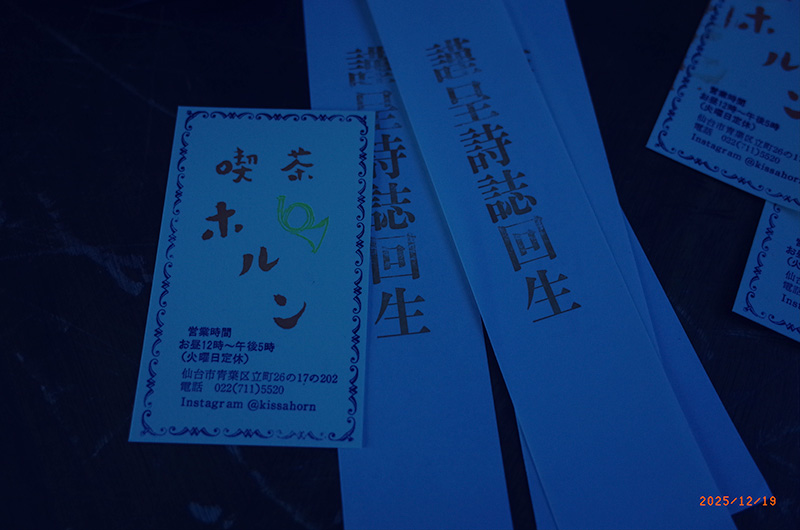 喫茶
ホルン
営業時間
お昼12時〜午後5時
(火曜日定休)
仙台市青葉区立町26の17の202
電話 022(711)5520
Instagram @kissahorn
謹呈詩誌回生
謹呈詩誌回生
ホルン
営業時間
お昼12時〜午後5時
(火曜日定休)
仙台市青葉区立町26の1
電話 022(711)5520
Instagram @kissahorn
仙台
電話
Inst
2025/12/19